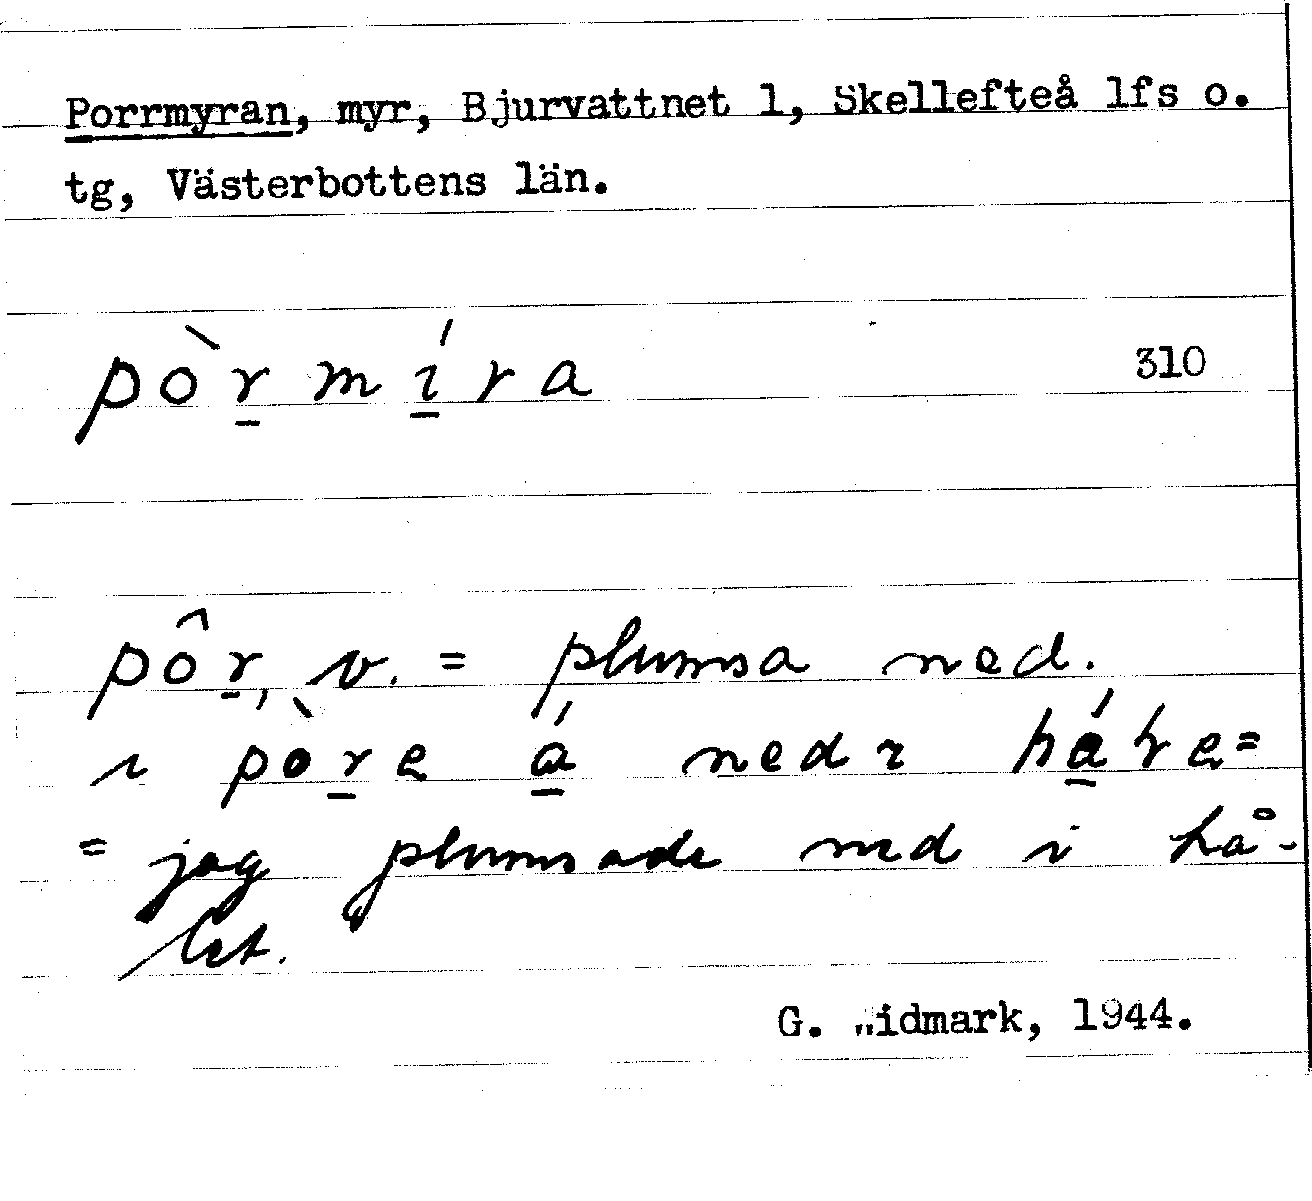 Porrmyran, myr, Bjurvattnet 1, Skellefteå lfs o.
tg, Västerbottens län.
pòr̲mí̲ra 310
pôr̲, v. = plumsa ned.
i pòr̲e á̲ nedı há̲ɫe=
= jag plumsade ned i hå-
let.
G. Widmark, 1944.